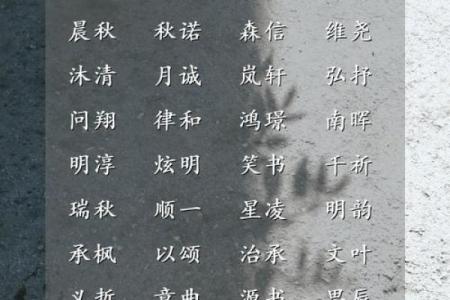 晨秋 秋诺 森信 维尧
沐清 月诚 岚轩 弘抒
问翔 律和 鸿璟 南晖
明淳 炫明 笑书 千祈
瑞秋 顺一 星凌 明韵
承枫 以颂 治承 文叶